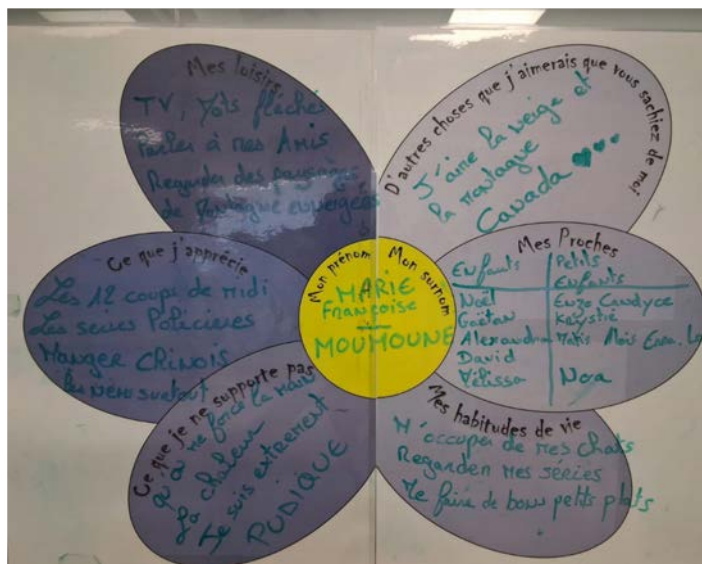 Mes loisirs
TV, Mots fléchés
Parler à mes Amis
Regarder des paysages
de Montagne enneigées
D'autres choses que j'aimerais que vous sachiez de moi
J'aime la neige et
la montagne
Canada
Ce que j'apprécie
Les 12 coups de midi
Les series Policieres
Manger Chinois
les nems surtout
Mon prénom
Mon surnom
MARIE
Françoise
MOUMOUNE
Mes Proches
Enfants
Petits
Enfants
Noël
Enzo Candyce
Gaëtan
Keystie
Alexandra
David
Mélissa
Noa
Ce que je ne supporte pas
qu'on me force la main
La chaleur
Je suis extrement
PUDIQUE
Mes habitudes de vie
M'occuper de mes chats
Regarder mes séries
Me faire de bons petits plats